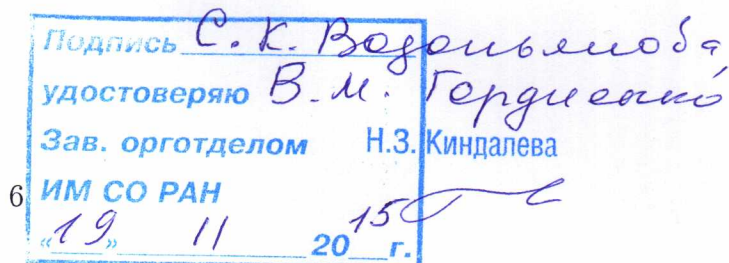 Подпись С. К. Водопьянова
удостоверяю В. М. Гордиенко
Зав. орготделом Н.З. Киндалева
6 ИМ СО РАН
«19» 11 2015 г.